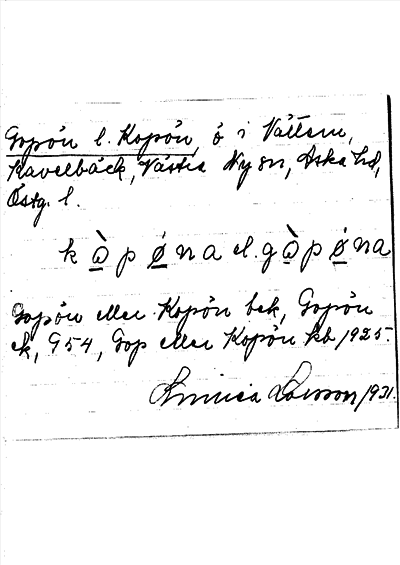 Gopön l. Kopön, ö i Vättern,
Kavelbäck, Västra Ny sn, Aska hd,
Östg. l.
kò̲pø̲na el. gò̲pø̲na
Gopön eller Kopön bek, Gopön
ek, G54, Gop eller Kopön kb 1925.
Larsson 1931.